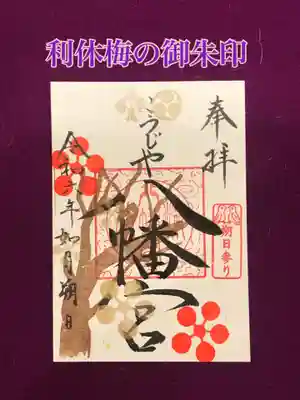 利休梅の御朱印
奉拝
こうじや
八幡宮
令和六年如月朔日
朔日参り